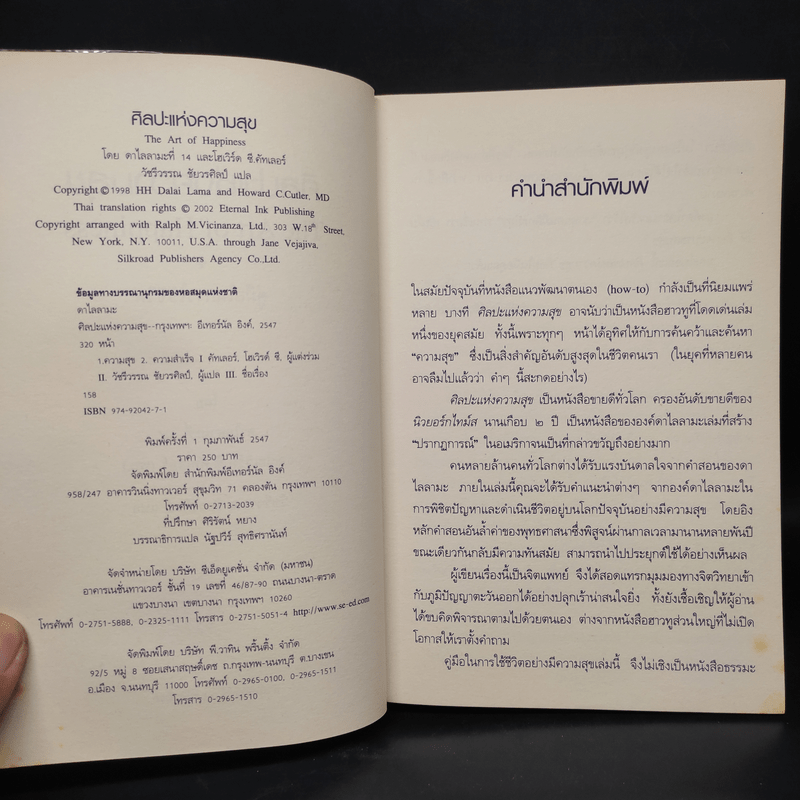 ศิลปะแห่งความสุข
The Art of Happiness
โดย ดาไลลามะที่ 14 และโฮเวิร์ด ซี.คัทเลอร์
วัชรีวรรณ ชัยวรศิลป์ แปล
Copyright © 1998 HH Dalai Lama and Howard C.Cutler, MD
Thai translation rights © 2002 Eternal Ink Publishing
Copyright arranged with Ralph M.Vicinanza, Ltd., 303 W.18th Street,
New York, N.Y. 10011, U.S.A. through Jane Vejajiva,
Silkroad Publishers Agency Co.,Ltd.
ข้อมูลทางบรรณานุกรมของหอสมุดแห่งชาติ
ดาไลลามะ
ศิลปะแห่งความสุข--กรุงเทพฯ: อีเทอร์นัล อิงค์, 2547
320 หน้า
1.ความสุข 2. ความสำเร็จ I คัทเลอร์, โฮเวิรด์ ซี, ผู้แต่งร่วม
II. วัชรีวรรณ ชัยวรศิลป์, ผู้แปล III. ชื่อเรื่อง
158
ISBN 974-92042-7-1
พิมพ์ครั้งที่ 1 กุมภาพันธ์ 2547
ราคา 250 บาท
จัดพิมพ์โดย สำนักพิมพ์อีเทอร์นัล อิงค์
958/247 อาคารวินนิ่งทาวเวอร์ สุขุมวิท 71 คลองตัน กรุงเทพฯ 10110
โทรศัพท์ 0-2713-2039
ที่ปรึกษา ศิริรัตน์ หยาง
บรรณาธิการแปล นัฐปวีร์ สุทธิศรานันท์
จัดจำหน่ายโดย บริษัท ซีเอ็ดยูเคชั่น จำกัด (มหาชน)
อาคารเนชั่นทาวเวอร์ ชั้นที่ 19 เลขที่ 46/87-90 ถนนบางนา-ตราด
แขวงบางนา เขตบางนา กรุงเทพฯ 10260
โทรศัพท์ 0-2751-5888, 0-2325-1111 โทรสาร 0-2751-5051-4 http://www.se-ed.com
จัดพิมพ์โดย บริษัท พี.วาทิน พริ้นติ้ง จำกัด
92/5 หมู่ 8 ซอยเสนาสฤษดิ์เดช ถ.กรุงเทพ-นนทบุรี ต.บางเขน
อ.เมือง จ.นนทบุรี 11000 โทรศัพท์ 0-2965-0100, 0-2965-1511
โทรสาร 0-2965-1510
คำนำสำนักพิมพ์
ในสมัยปัจจุบันที่หนังสือแนวพัฒนาตนเอง (how-to) กำลังเป็นที่นิยมแพร่
หลาย บางที ศิลปะแห่งความสุข อาจนับว่าเป็นหนังสือฮาวทูที่โดดเด่นเล่ม
หนึ่งของยุคสมัย ทั้งนี้เพราะทุกๆ หน้าได้อุทิศให้กับการค้นคว้าและค้นหา
“ความสุข” ซึ่งเป็นสิ่งสำคัญอันดับสูงสุดในชีวิตคนเรา (ในยุคที่หลายคน
อาจลืมไปแล้วว่า คำๆ นี้สะกดอย่างไร)
ศิลปะแห่งความสุข เป็นหนังสือขายดีทั่วโลก ครองอันดับขายดีของ
นิวยอร์กไทม์ส นานเกือบ ๒ ปี เป็นหนังสือขององค์ดาไลลามะเล่มที่สร้าง
“ปรากฏการณ์” ในอเมริกาจนเป็นที่กล่าวขวัญถึงอย่างมาก
คนหลายล้านคนทั่วโลกต่างได้รับแรงบันดาลใจจากคำสอนของดา
ไลลามะ ภายในเล่มนี้คุณจะได้รับคำแนะนำต่างๆ จากองค์ดาไลลามะใน
การพิชิตปัญหาและดำเนินชีวิตอยู่บนโลกปัจจุบันอย่างมีความสุข โดยอิง
หลักคำสอนอันล้ำค่าของพุทธศาสนาซึ่งพิสูจน์ผ่านกาลเวลามานานหลายพันปี
ขณะเดียวกันกลับมีความทันสมัย สามารถนำไปประยุกต์ใช้ได้อย่างเห็นผล
ผู้เขียนเรื่องนี้เป็นจิตแพทย์ จึงได้สอดแทรกมุมมองทางจิตวิทยาเข้า
กับภูมิปัญญาตะวันออกได้อย่างปลุกเร้าน่าสนใจยิ่ง ทั้งยังเชื้อเชิญให้ผู้อ่าน
ได้ขบคิดพิจารณาตามไปด้วยตนเอง ต่างจากหนังสือฮาวทูส่วนใหญ่ที่ไม่เปิด
โอกาสให้เราตั้งคำถาม
คู่มือในการใช้ชีวิตอย่างมีความสุขเล่มนี้ จึงไม่เชิงเป็นหนังสือธรรมะ